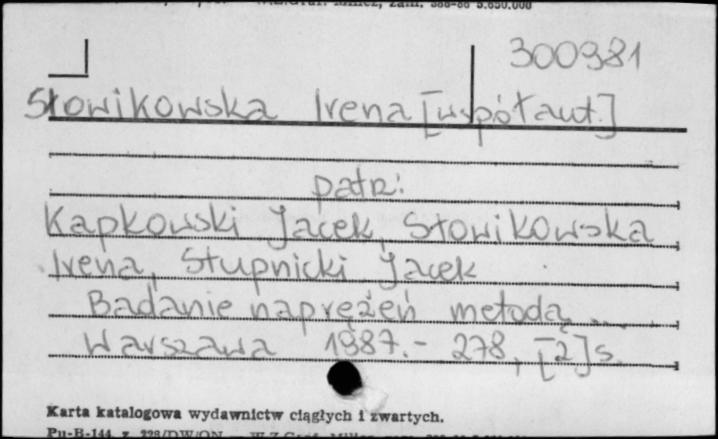 300981
Słowikowska Irena [współaut.]
patrz:
Kapkowski Jacek, Słowikowska
Irena, Stupnicki Jacek
Badanie naprężeń metodą ...
Warszawa 1987. - 278, [2] s.
Karta katalogowa wydawnictw ciągłych i zwartych.
Pu-B-144